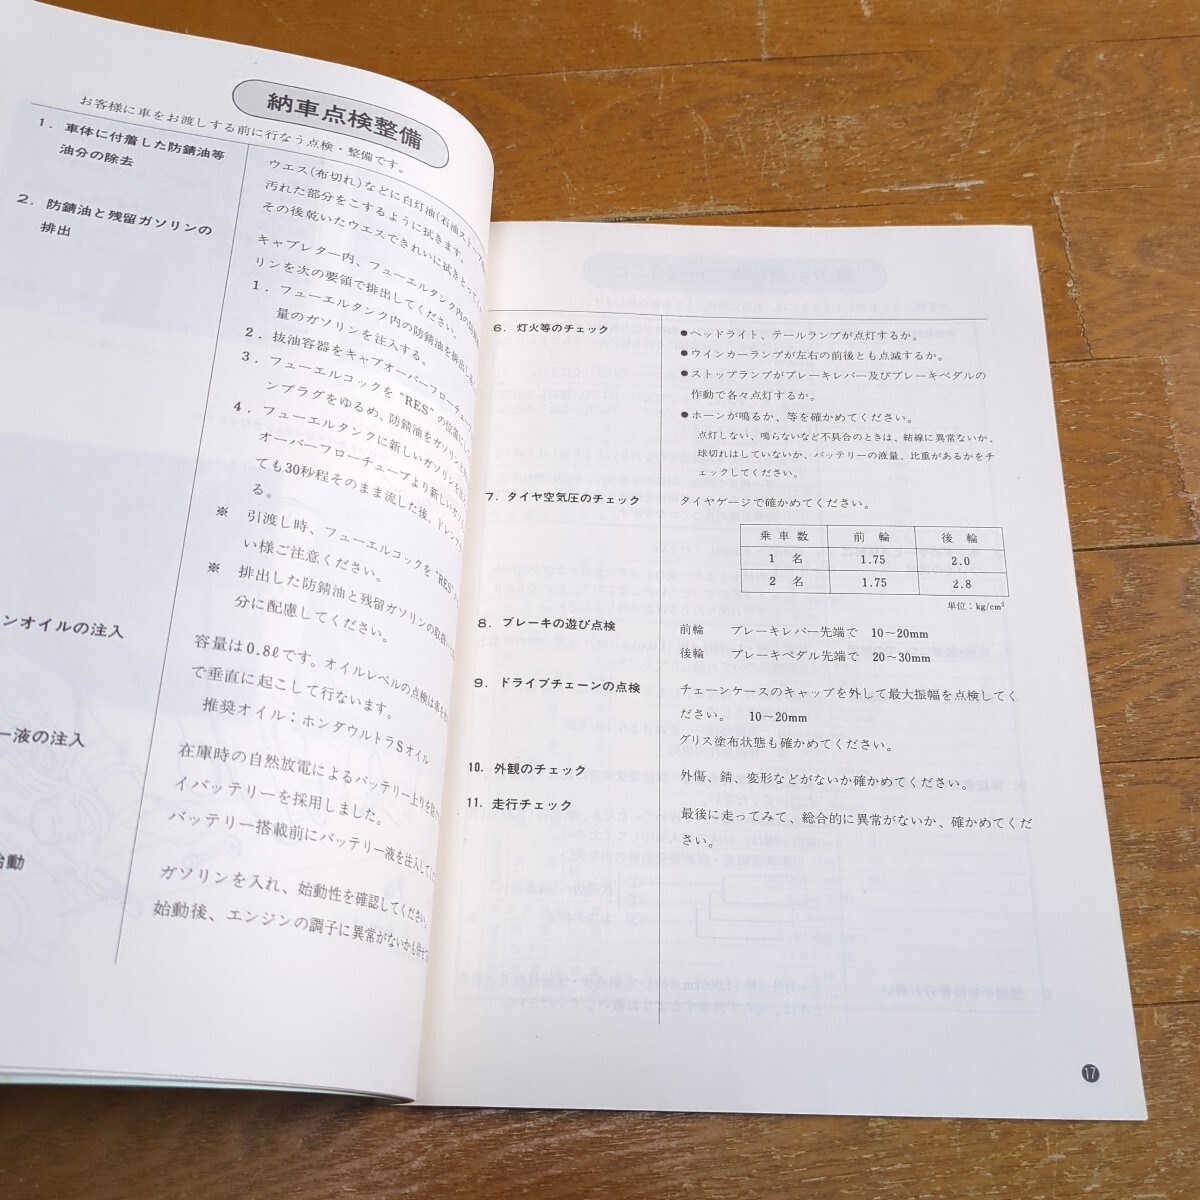 納車点検整備
お客様に車をお渡しする前に行なう点検・整備です。
1. 車体に付着した防錆油等
油分の除去
ウエス(布切れ)などに白灯油(石油ストーブ
汚れた部分をこするように拭きます。
その後乾いたウエスできれいに拭きとって
2. 防錆油と残留ガソリンの
排出
キャブレター内、フューエルタンク内の防錆
リンを次の要領で排出してください。
1. フューエルタンク内の防錆油を排出し
量のガソリンを注入する。
2. 抜油容器をキャブオーバーフローチューブ
3. フューエルコックを“RES”の位置にし
ンプラグをゆるめ、防錆油をガソリン
4. フューエルタンクに新しいガソリンを
オーバーフローチューブより新しいガソリ
ても30秒程そのまま流した後、ドレンプラ
る。
※ 引渡し時、フューエルコックを“RES”
い様ご注意ください。
※ 排出した防錆油と残留ガソリンの取扱い
分に配慮してください。
ンオイルの注入
容量は0.8ℓです。オイルレベルの点検は車を
で垂直に起こして行ないます。
推奨オイル：ホンダウルトラSオイル
ー液の注入
在庫時の自然放電によるバッテリー上りを防
イバッテリーを採用しました。
バッテリー搭載前にバッテリー液を注入して
始動
ガソリンを入れ、始動性を確認してください。
始動後、エンジンの調子に異常がないかも
6. 灯火等のチェック
●ヘッドライト、テールランプが点灯するか。
●ウインカーランプが左右の前後とも点滅するか。
●ストップランプがブレーキレバー及びブレーキペダルの
作動で各々点灯するか。
●ホーンが鳴るか、等を確かめてください。
点灯しない、鳴らないなど不具合のときは、結線に異常ないか、
球切れはしていないか、バッテリーの液量、比重があるかをチ
ェックしてください。
7. タイヤ空気圧のチェック
タイヤゲージで確かめてください。
乗車数 前輪 後輪
1名 1.75 2.0
2名 1.75 2.8
単位：kg/cm²
8. ブレーキの遊び点検
前輪 ブレーキレバー先端で 10～20mm
後輪 ブレーキペダル先端で 20～30mm
9. ドライブチェーンの点検
チェーンケースのキャップを外して最大振幅を点検してく
ださい。 10～20mm
グリス塗布状態も確かめてください。
10. 外観のチェック
外傷、錆、変形などがないか確かめてください。
11. 走行チェック
最後に走ってみて、総合的に異常がないか、確かめてくだ
さい。
17